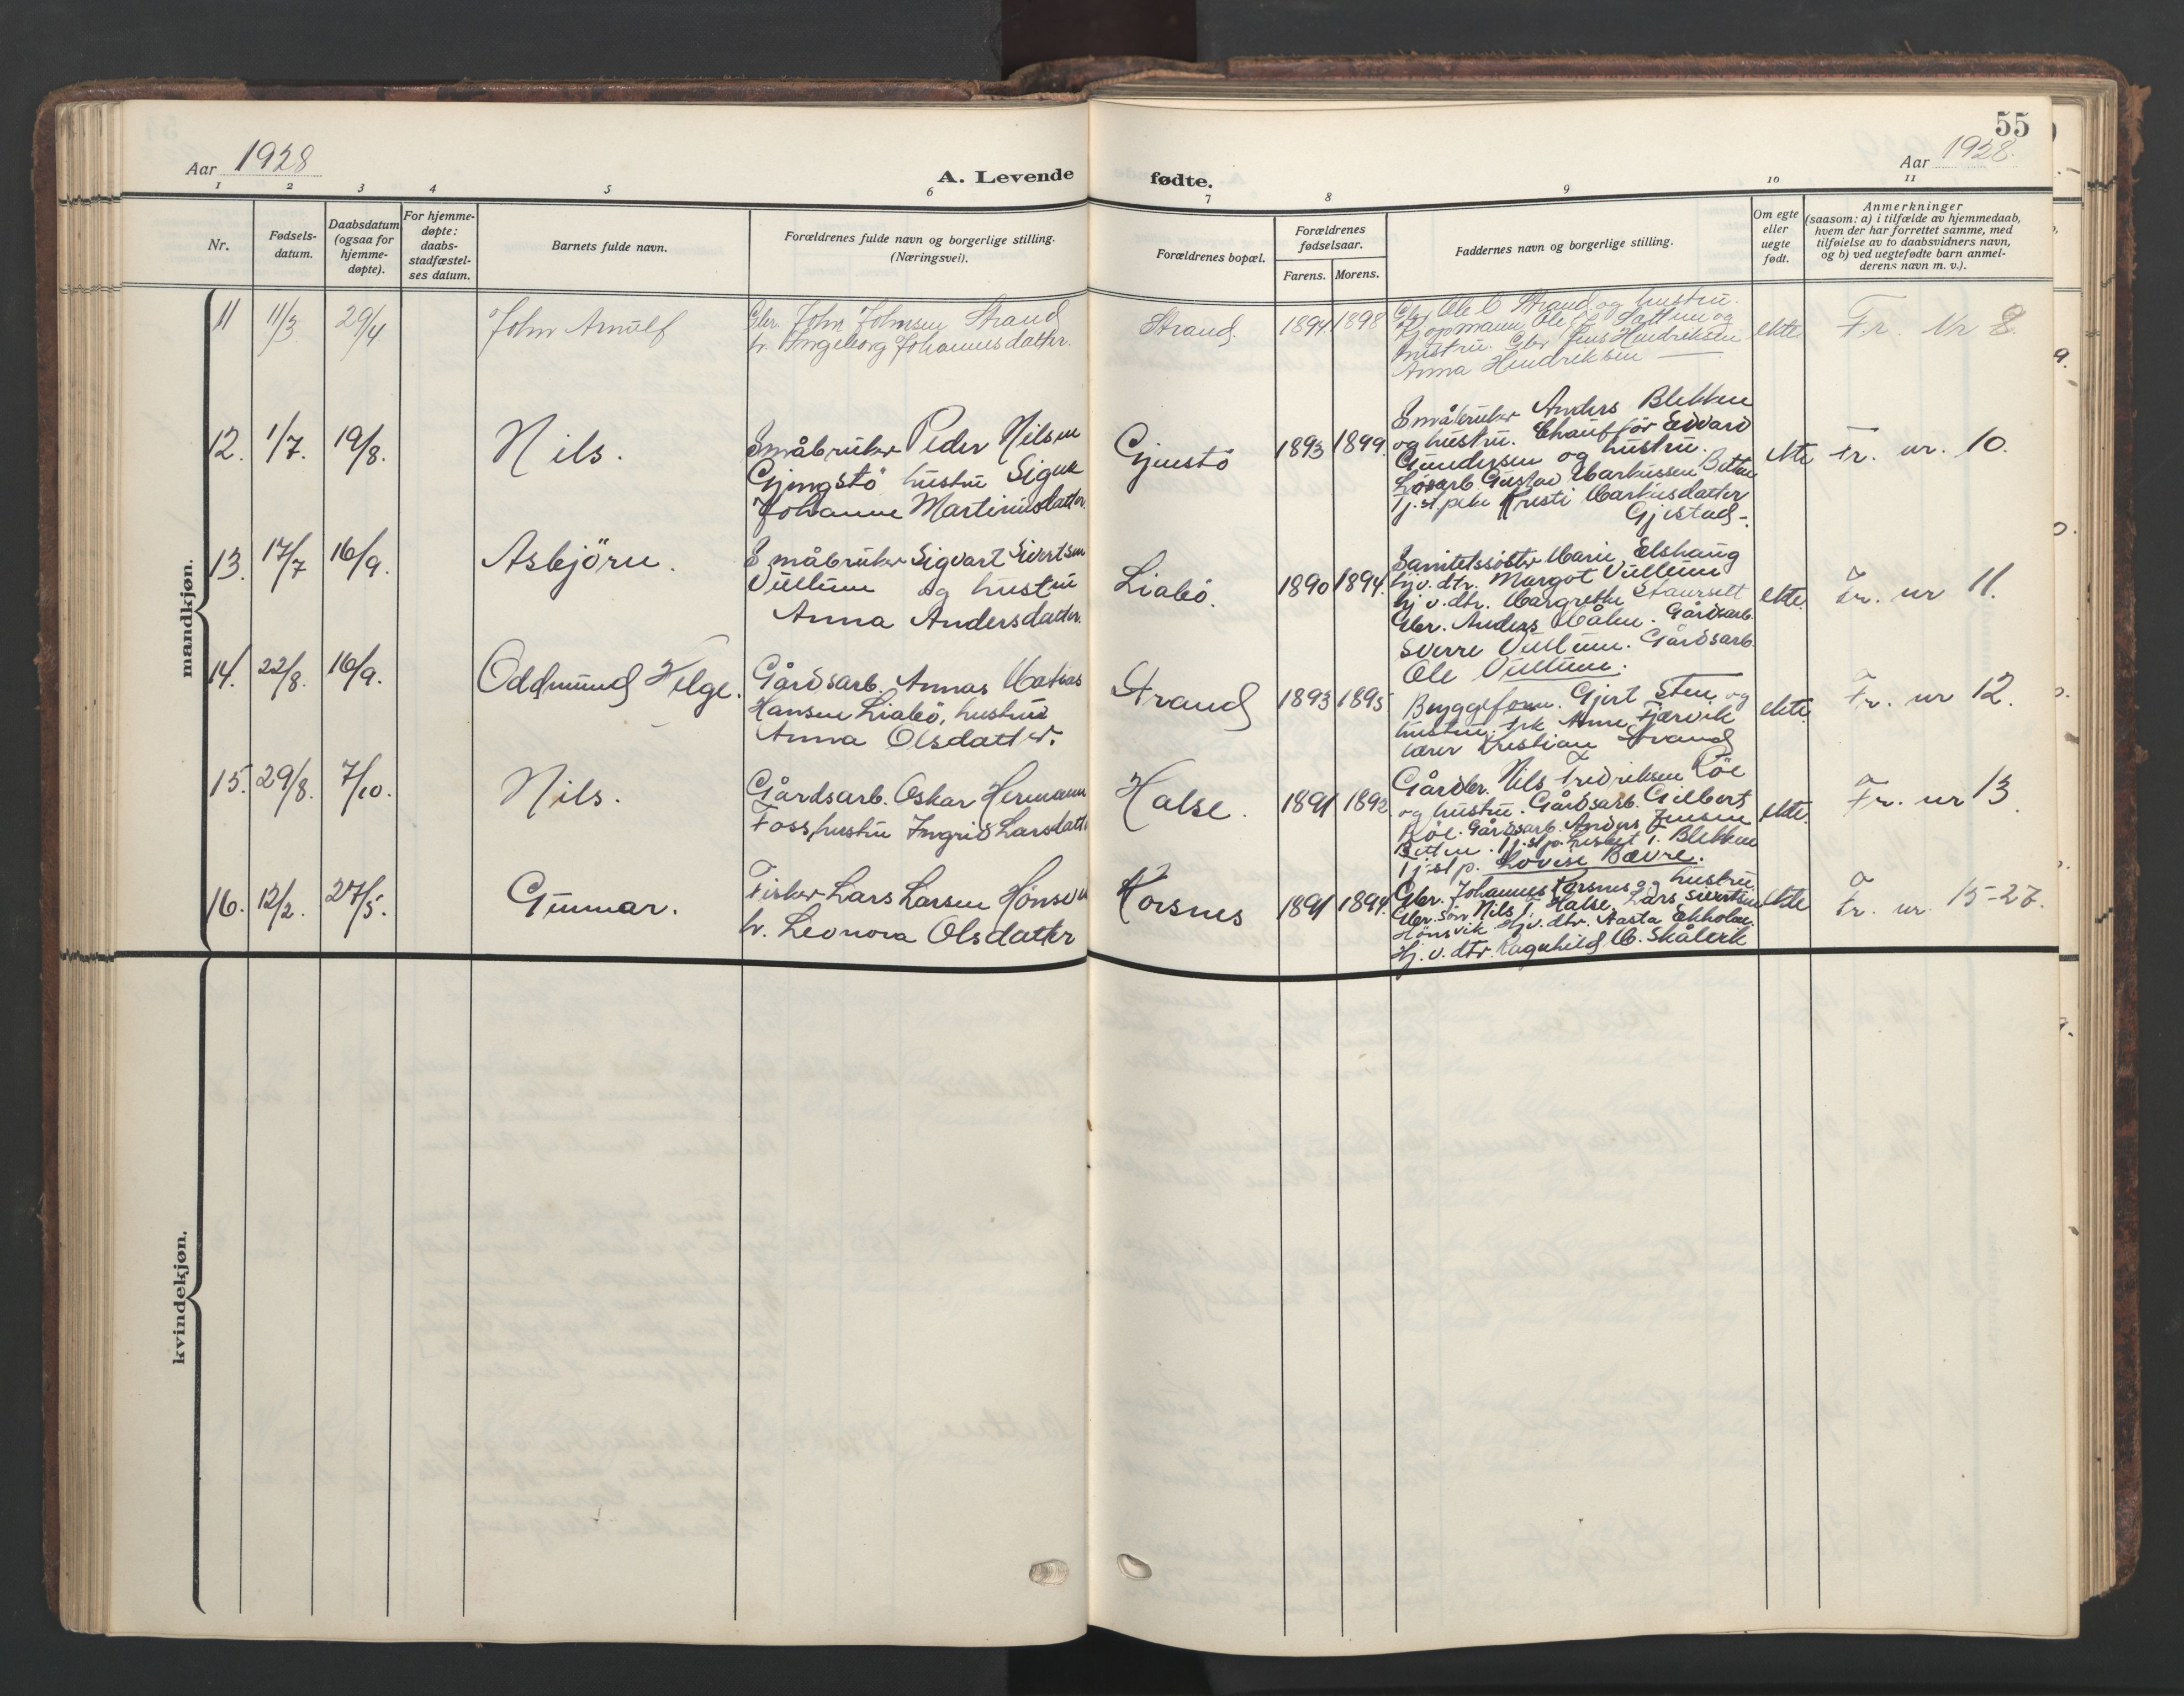 55
Aar 1928
Aar 1928.
A. Levende fødte.
1 2 3 4 5 6 7 8 9 10 11
Nr.
Fødsels-
datum.
Daabsdatum
(ogsaa for
hjemme-
døpte).
For hjemme-
døpte:
daabs-
stadfæstel-
ses datum.
Barnets fulde navn.
Forældrenes fulde navn og borgerlige stilling.
(Næringsvei).
Forældrenes bopæl.
Forældrenes
fødselsaar.
Farens. Morens.
Faddernes navn og borgerlige stilling.
Om egte
eller
uegte
født.
Anmerkninger
(saasom: a) i tilfælde av hjemmedaab,
hvem der har forrettet samme, med
tilføielse av to daabsvidners navn,
og b) ved uegtefødte barn anmel-
derens navn m. v.).
mandkjøn.
11 11/3 29/4 John Arnulf
Gbr. John Johnsen Strand
h. Ingeborg Johannesdatter.
Strand. 1894 1898
Gbr. Ole O Strand og hustru.
Kjøpmann Ole Sættem og
hustru. Gbr Jens Hendriksen
Anna Hendriksen
ekte Fr. Nr 8.
12. 1/7. 19/8. Nils.
Småbruker Peder Nilsen
Gjingstö hustru Signe
Johanne Martinusdatter.
Gjinstö 1893 1899.
Småbruker Anders Blekken
og hustru. Chauffør Edvard
Gundersen og hustru.
Løsarb Gustav Markussen Botten
Tj.st.pike Kristi Markusdatter
Gjistad-.
ekte Fr. nr. 10.
13. 17/7 16/9. Asbjörn.
Småbruker Sigvart Sivertsen
Vullum og hustru
Anna Andersdatter.
Liabö. 1890 1894.
Sanitetssöster Marie Elshaug
hj.v.dtr. Margot Vullum
hj v.dtr. Margrethe Staurset
Gbr. Anders Måhn. Gårdsarb.
Sverre Vullum. Gårdsarb.
Ole Vullum.
ekte. Fr. nr 11.
14. 22/8. 16/9. Oddmund Helge.
Gårdsarb. Annas Matias
Hansen Liabö, hustru
Anna Olsdatter.
Strand 1893 1895
Byggeform. Gjert Sten og
hustru, frk Anne Fjærvik
lærer Kristian Strand
ekte. Fr. nr 12.
15. 29/8. 7/10. Nils.
Gårdsarb. Oskar Hermann
Foss, hustru Ingrid Larsdatter
Halse. 1891 1892
Gårdbr. Nils Fredriksen Röe
og hustru. Gårdsarb. Gilbert
Röe. Gårdsarb. Anders Jensen
Botten. Tj.st.p. Lisbet I. Blekken
Tj.st p. Lovise Bævre.
ekte. Fr. nr 13
16. 12/2. 27/5. Gunnar.
Fisker Lars Larsen Hönsvik
h. Leonora Olsdatter
Korsnes 1891 1894.
Gbr. Johannes Korsnes og hustru.
Gbr.sön Nils J. Halse. Lars Sivertsen
Hönsvik Hj.v.dtr. Aasta Ekholm.
Hj.v.dtr. Ragnhild M. Skålvik
ekte Fr. nr. 15-27.
kvindekjøn.